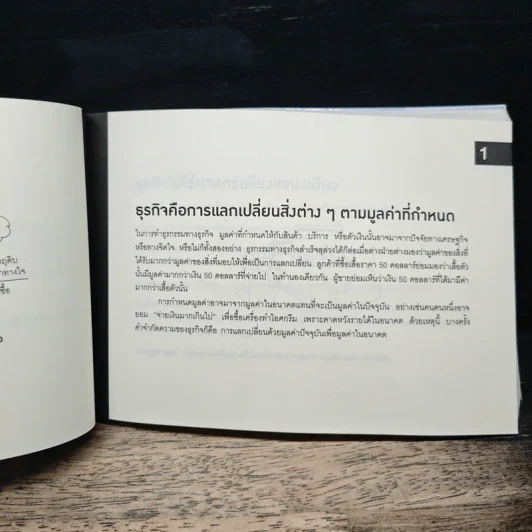 ฤดิบ
าทางใจ
ซื้อ
1
ธุรกิจคือการแลกเปลี่ยนสิ่งต่าง ๆ ตามมูลค่าที่กำหนด
ในการทำธุรกรรมทางธุรกิจ มูลค่าที่กำหนดให้กับสินค้า บริการ หรือตัวเงินนั้นอาจมาจากปัจจัยทางเศรษฐกิจ
หรือทางจิตใจ หรือไม่ก็ทั้งสองอย่าง ธุรกรรมทางธุรกิจสำเร็จลุล่วงได้ก็ต่อเมื่อต่างฝ่ายต่างมองว่ามูลค่าของสิ่งที่
ได้รับมากกว่ามูลค่าของสิ่งที่มอบให้เพื่อเป็นการแลกเปลี่ยน ลูกค้าที่ซื้อเสื้อราคา 50 ดอลลาร์ย่อมมองว่าเสื้อตัว
นั้นมีมูลค่ามากกว่าเงิน 50 ดอลลาร์ที่จ่ายไป ในทำนองเดียวกัน ผู้ขายย่อมเห็นว่าเงิน 50 ดอลลาร์ที่ได้มามีค่า
มากกว่าเสื้อตัวนั้น
การกำหนดมูลค่าอาจมาจากมูลค่าในอนาคตแทนที่จะเป็นมูลค่าในปัจจุบัน อย่างเช่นคนคนหนึ่งอาจ
ยอม “จ่ายเงินมากเกินไป” เพื่อซื้อเครื่องทำไอศกรีม เพราะคาดหวังรายได้ในอนาคต ด้วยเหตุนี้ บางครั้ง
คำจำกัดความของธุรกิจก็คือ การแลกเปลี่ยนด้วยมูลค่าปัจจุบันเพื่อมูลค่าในอนาคต